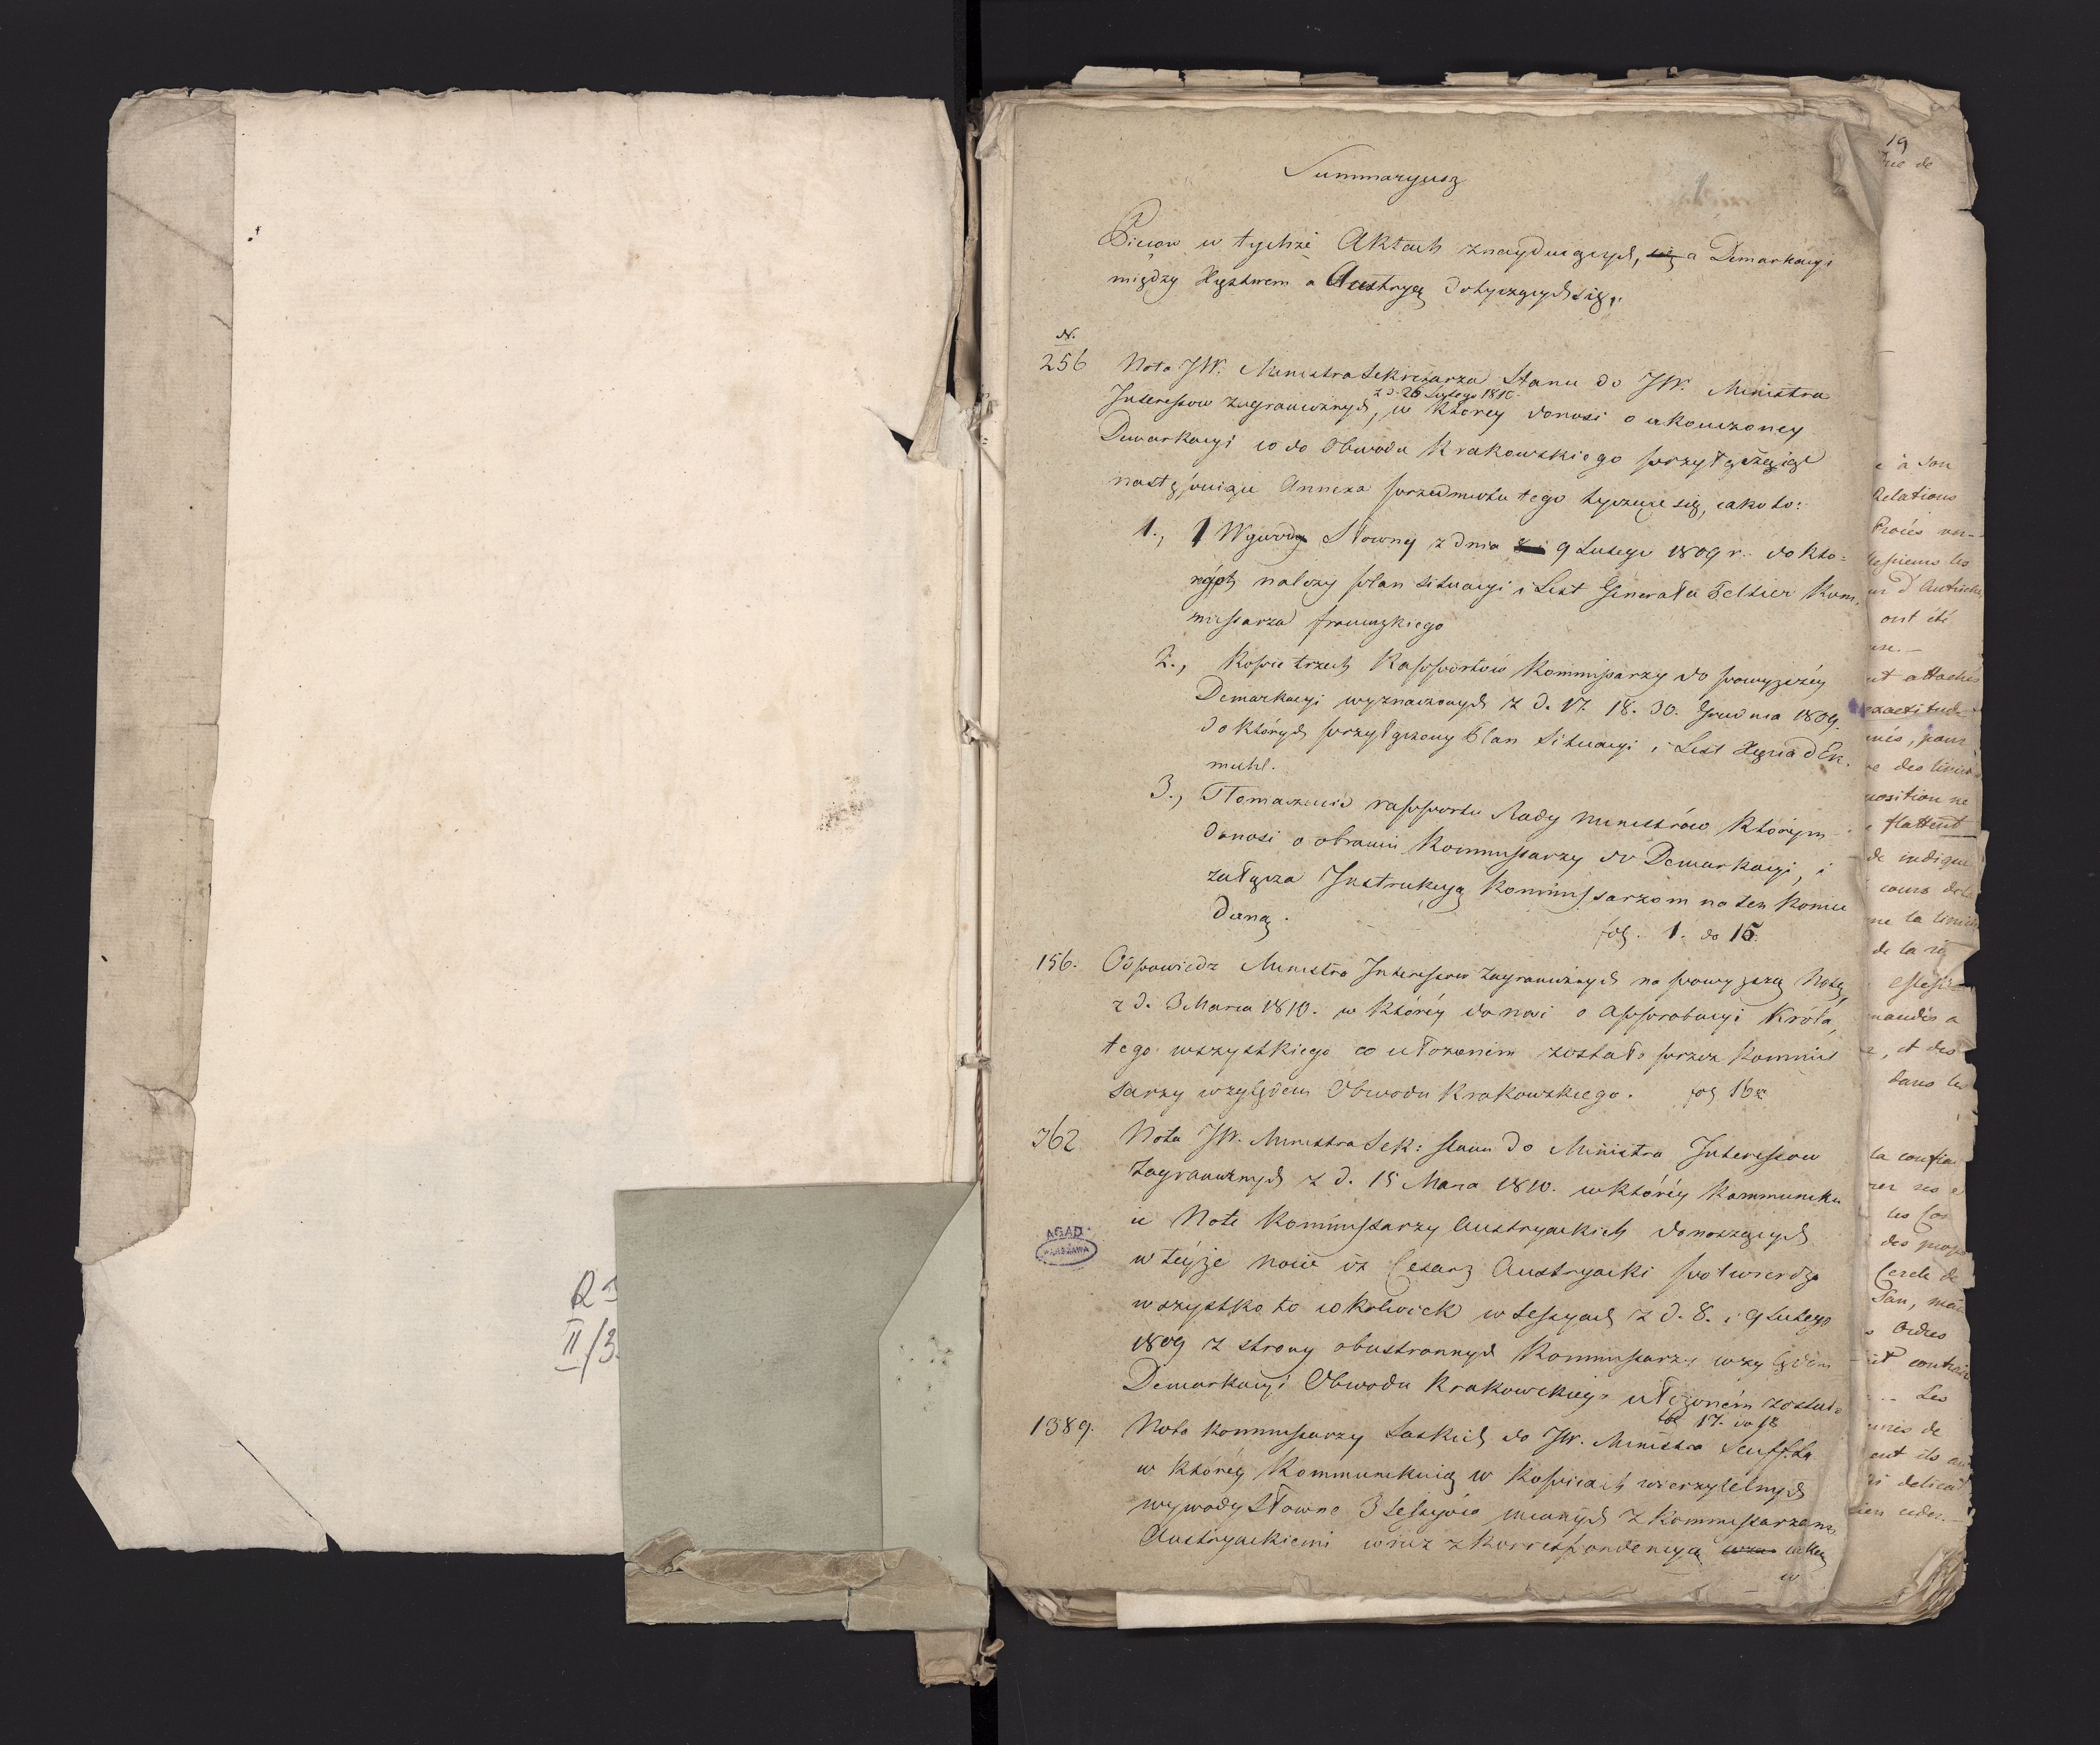 Summaryusz
Pismow w tychże Aktach znayduiących, się a Demarkacyi
między Xięstwem a Austryą dotyczących się,,
N.
256 Nota JW. Ministra Sekretarza Stanu do JW. Ministra
z d. 26 Lutego 1810.
Interessow Zagranicznych, w ktorey donosi o ukonczoney
Demarkacyi co do Obwodu Krakowskiego przyłączaiąc
następuiące Annexa przedmiotu tego tyczące się, iako to:
1., Wywody Słowny z dnia 8 i 9 Lutego 1809 r. do kto=
rych należy plan situacyi i List Generała Peltier Kom,
missarza francuzkiego
2., Kopie trzech Rapportów Kommissarzy do powyższéy
Demarkacyi wyznaczonych z d. 17. 18. 30. Grudnia 1809.
do których przyłączony Plan Situacyi i List Xięcia d'Ek,
muhl.
3., Tłomaczenie rapportu Rady Ministrów którym
donosi o obraniu Kommissarzy do Demarkacyi, i
załącza Instrukcyą Kommissarzom na ten koniec
daną.
fol. 1. do 15.
156. Odpowiedz Ministra Interessow Zagranicznych na powyższą Notę
z d. 3 Marca 1810. w któréy donosi o approbacyi Króla,
tego wszystkiego co ułożonem zostało przez Kommis
sarzy względem Obwodu Krakowskiego. fol 16.
362 Nota JW. Ministra Sek: stanu do Ministra Interessow
Zagranicznych z d. 15 Marca 1810. w któréy Kommuniku
ie Note Kommissarzy Austryackich donoszących
w teyże nocie iż Cesarz Austryacki potwierdza
wszystko to cokolwiek w Sessyach z d. 8. i 9 Lutego
1809 z strony obustronnych Kommissarzy względem
Demarkacyi Obwodu Krakowskiego ułożoném zostało
fol 17. do 18
1389. Nota Kommissarzy Saskich do JW. Ministra Senffta
w któréy Kommunikuią w Kopiach wierzytelnych
wywody Słowne 3 Sessyów mianych z Kommissarzami
Austryackiemi wraz z Korrespondencyą
w
AGAD
WARSZAWA
II/3
19
e à Son
Relations
Procès ver-
d'Autriche
ont été
attachés
exactitude
position ne
flattent
de indiqu
cours de la
ne la limite
de la
, et des
dans les
la confia
des prop
Cercle de
San, mai
Ordres
contrair
Les
ent ils
delicat